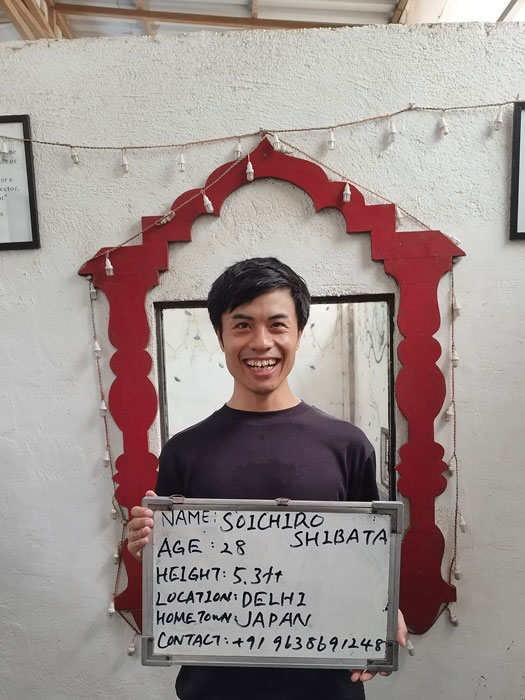 NAME: SOICHIRO
SHIBATA
AGE: 28
HEIGHT: 5.3ft
LOCATION: DELHI
HOMETOWN: JAPAN
CONTACT: +91 9638691248
or a
ector.